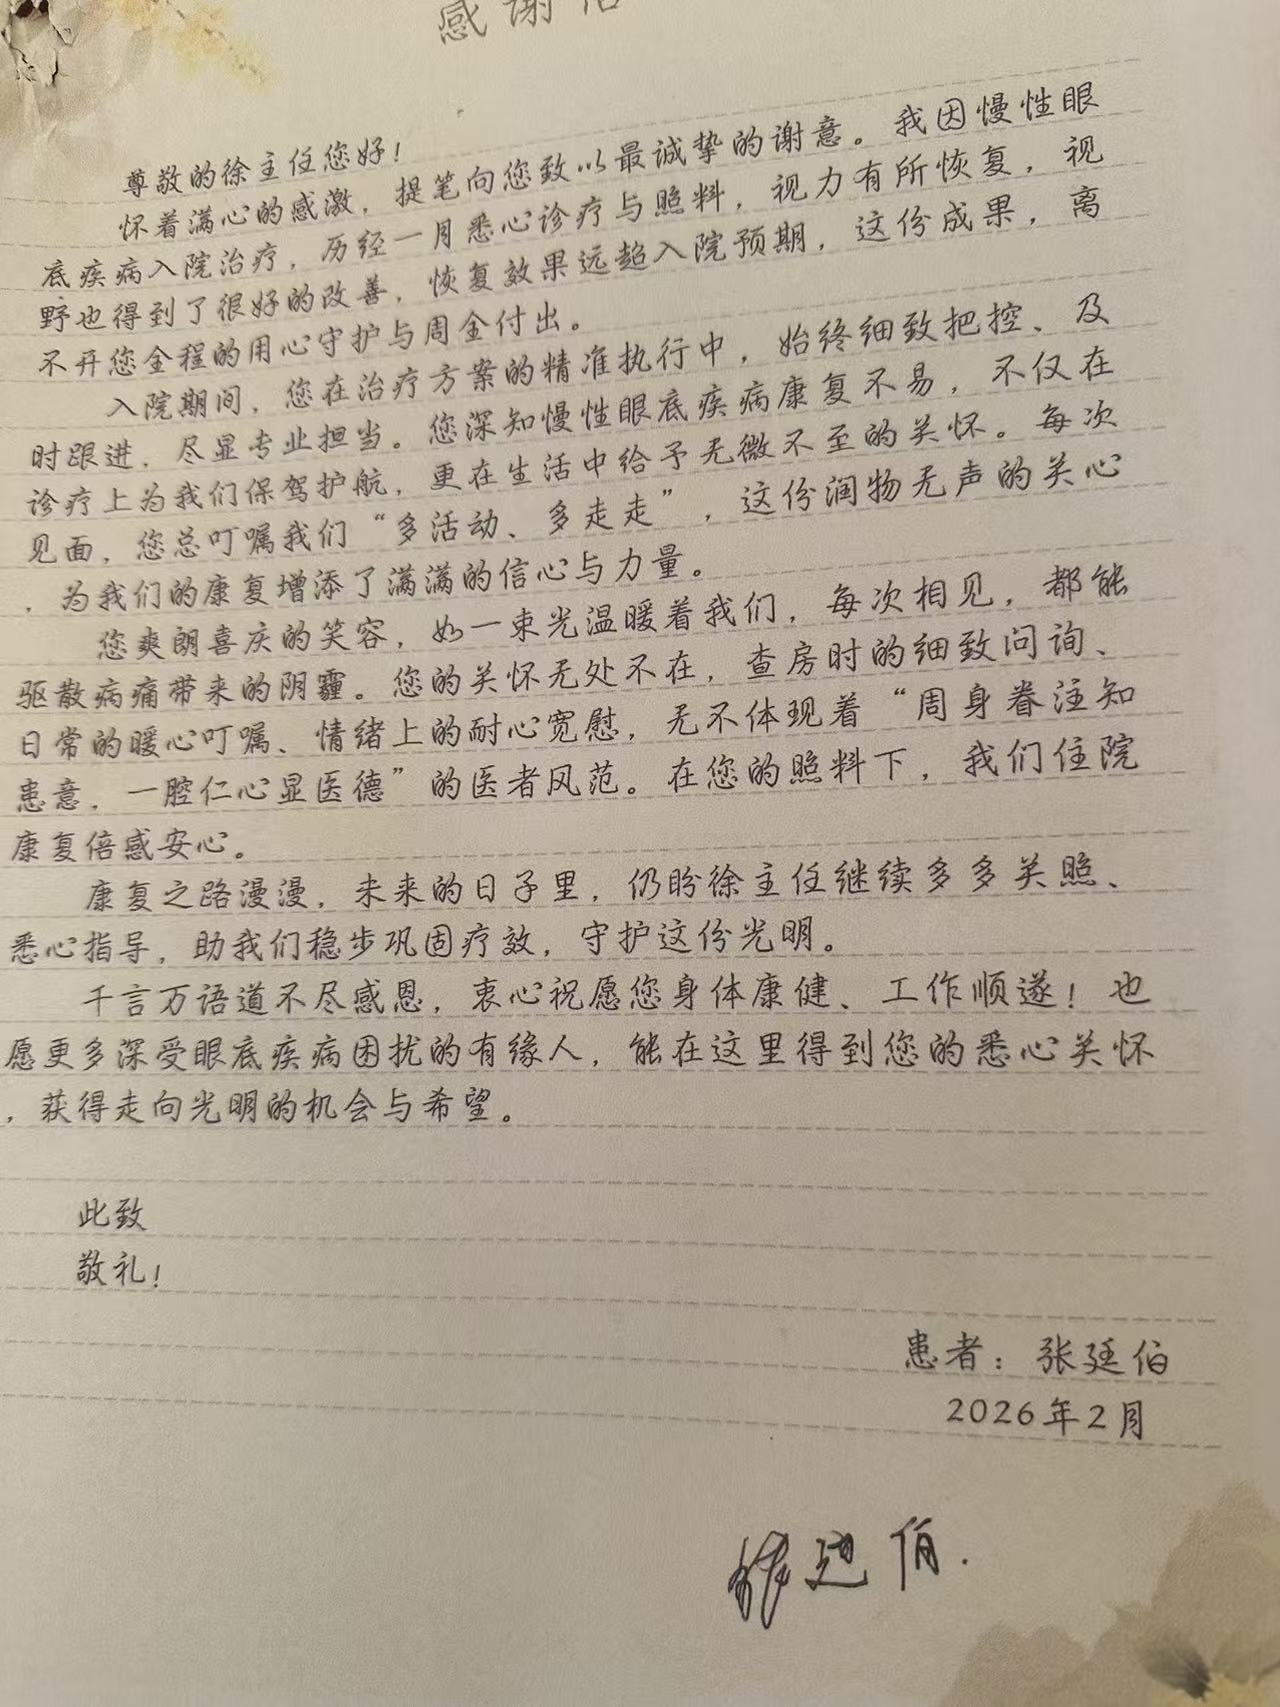 感谢信
尊敬的徐主任您好！
怀着满心的感激，提笔向您致以最诚挚的谢意。我因慢性眼
底疾病入院治疗，历经一月悉心诊疗与照料，视力有所恢复，视
野也得到了很好的改善，恢复效果远超入院预期，这份成果，离
不开您全程的用心守护与周全付出。
入院期间，您在治疗方案的精准执行中，始终细致把控、及
时跟进，尽显专业担当。您深知慢性眼底疾病康复不易，不仅在
诊疗上为我们保驾护航，更在生活中给予无微不至的关怀。每次
见面，您总叮嘱我们“多活动、多走走”，这份润物无声的关心
，为我们的康复增添了满满的信心与力量。
您爽朗喜庆的笑容，如一束光温暖着我们，每次相见，都能
驱散病痛带来的阴霾。您的关怀无处不在，查房时的细致问询、
日常的暖心叮嘱、情绪上的耐心宽慰，无不体现着“周身眷注知
患意，一腔仁心显医德”的医者风范。在您的照料下，我们住院
康复倍感安心。
康复之路漫漫，未来的日子里，仍盼徐主任继续多多关照、
悉心指导，助我们稳步巩固疗效，守护这份光明。
千言万语道不尽感恩，衷心祝愿您身体康健、工作顺遂！也
愿更多深受眼底疾病困扰的有缘人，能在这里得到您的悉心关怀
，获得走向光明的机会与希望。
此致
敬礼！
患者：张廷伯
2026年2月
张廷伯.